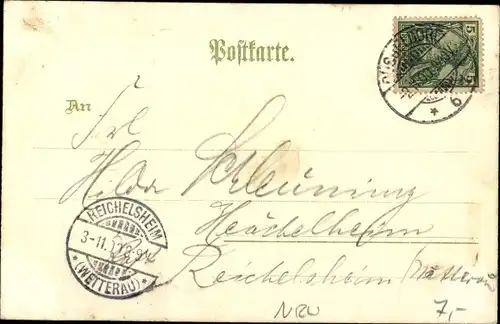 Postkarte.
5 5
6
An
Frl.
Hilda Schleuning
Heuchelheim
Reichelsheim
REICHELSHEIM
3-11.
* (WETTERAU) *
NRW
7,-